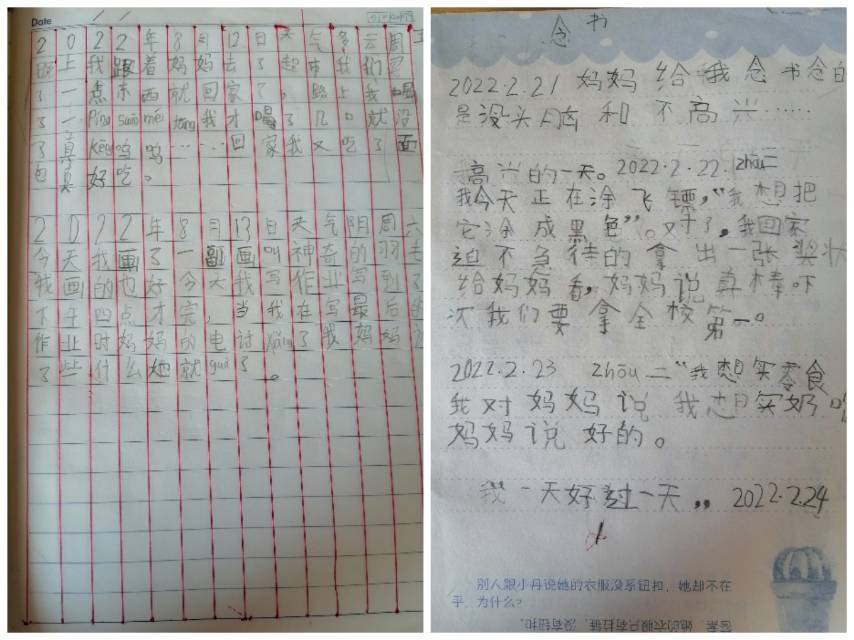 Date
2022年8月12日天气多云周五
晚上我跟着妈妈去了超市我们买
了一点东西就回家了。路上我喝
了一píng suān méi tāng我才喝了几口就没
了真kěxī呜呜……回家我又吃了面
包真好吃。
2022年8月13日天气阴周六
今天我画了一副画叫神奇的羽毛
我画的也好今天我写作业写到了
下午四点才完,当我在写最后
作业时妈妈的电讨xiǎng了我妈妈
了些什么她就guà了。
念书
2022.2.21妈妈给我念书念的
是没头脑和不高兴……
高兴的一天。2022.2.22.zhōu二
我今天正在涂飞镖,“我想把
它涂成黑色”。对了,我回家
迫不及待的拿出一张奖状
给妈妈看,妈妈说真棒下
次我们要拿全校第一。
2022.2.23 zhōu二“我想买零食
我对妈妈说我想买奶吃
妈妈说好的。
我一天好过一天,,2022.2.24
别人跟小丹说她的衣服没系钮扣,她却不在
乎,为什么?
答案:她的衣服只有拉链,没有钮扣。